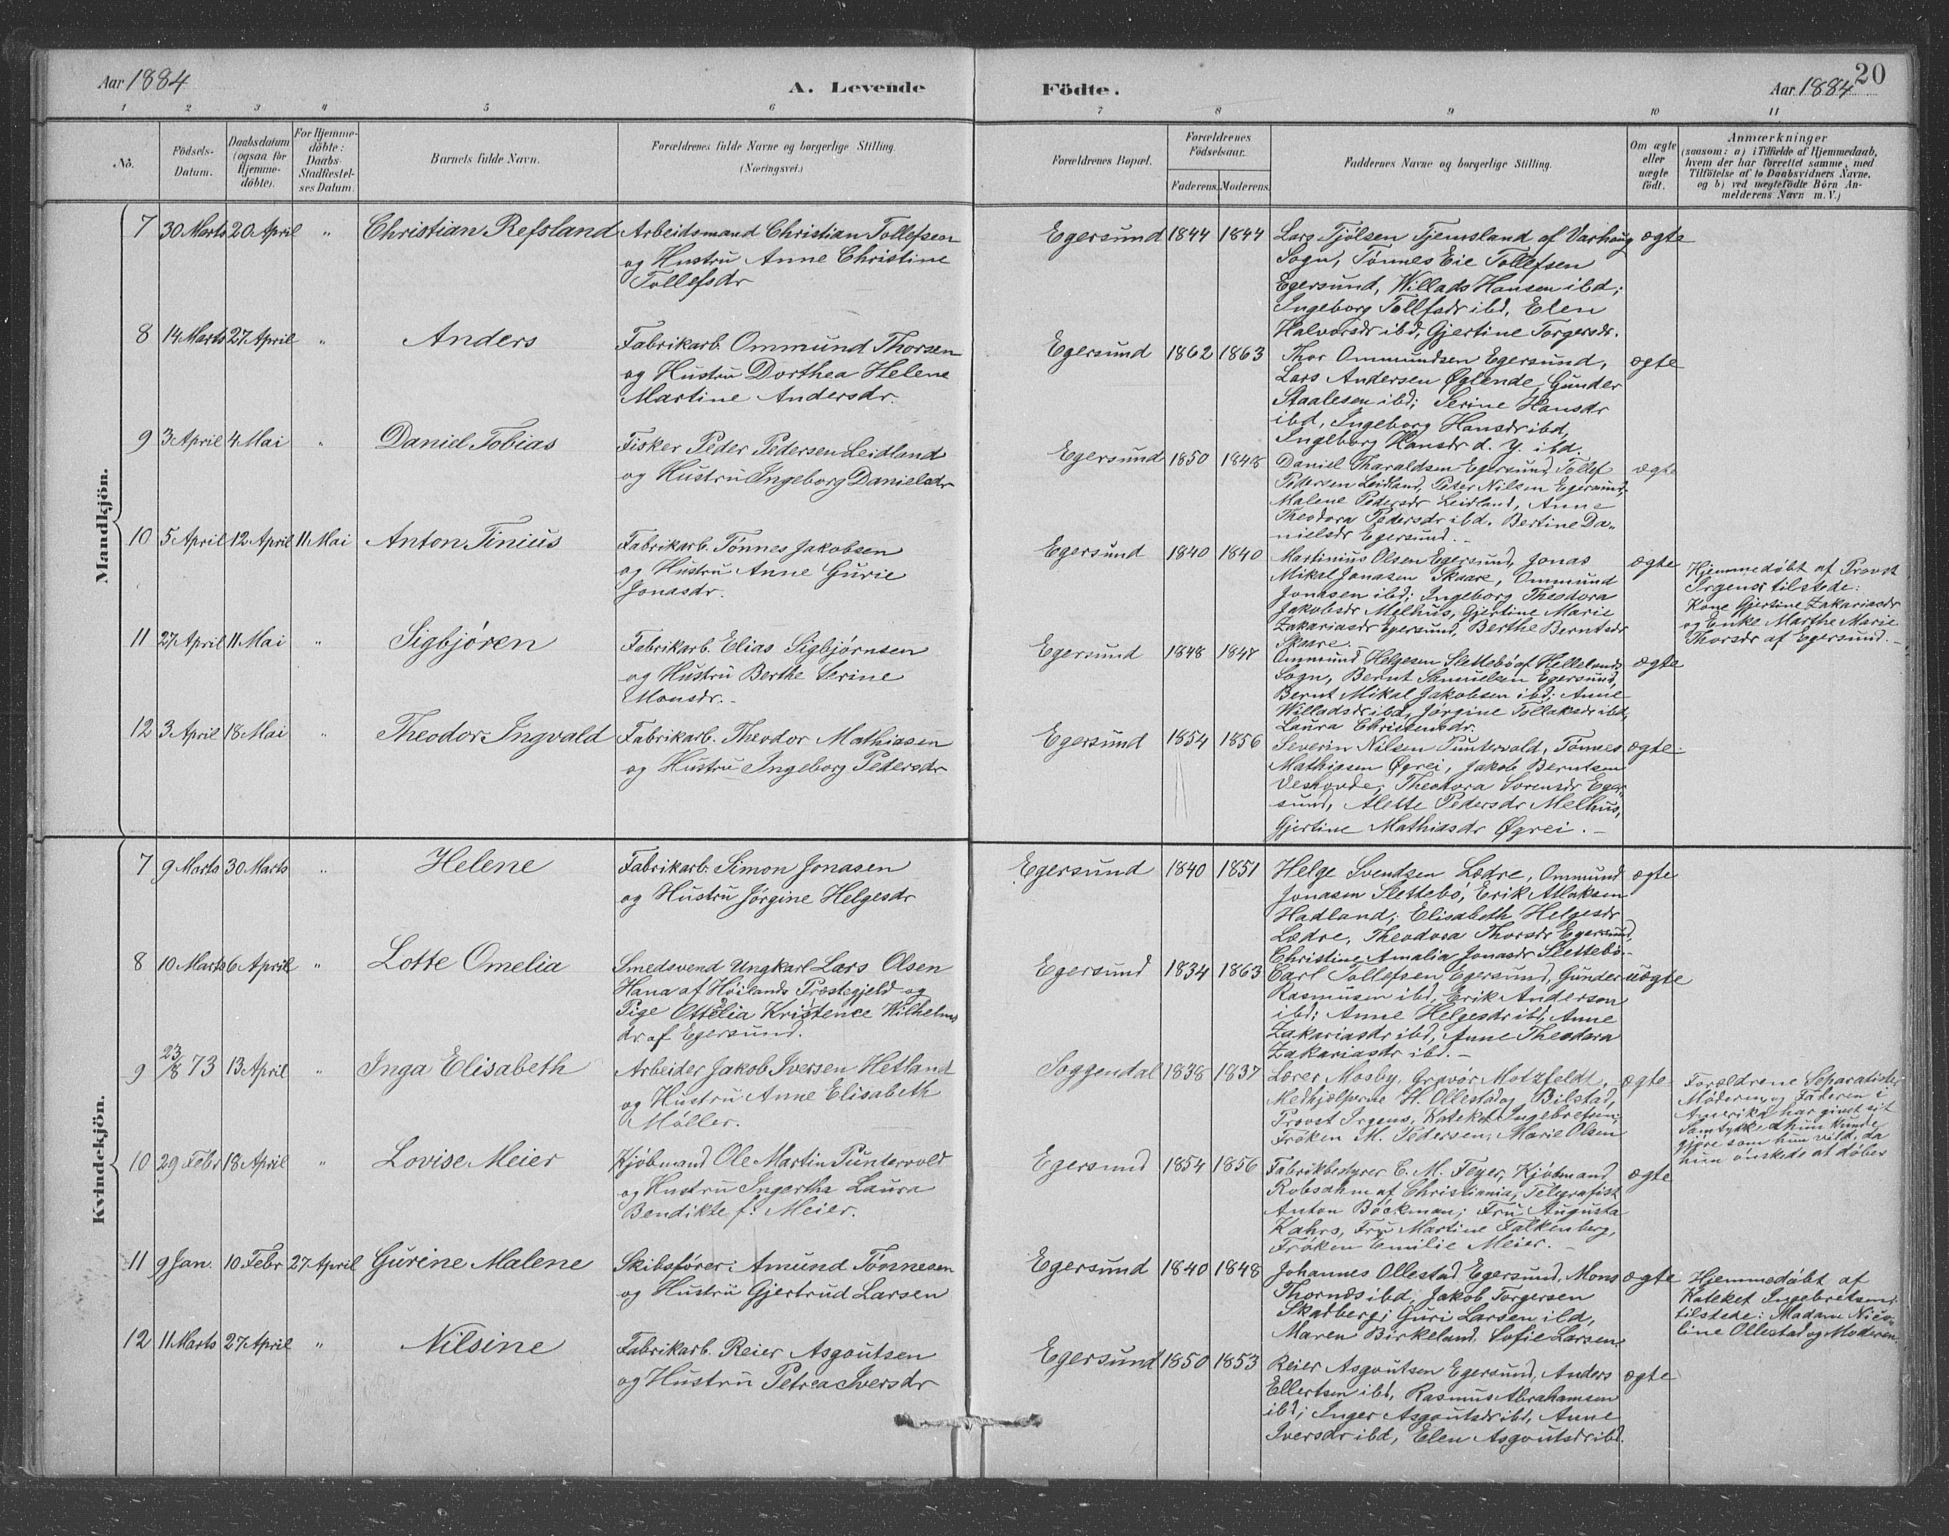 Aar 1884
A. Levende Födte.
Aar 1884
20
1 2 3 4 5 6 7 8 9 10 11
No.
Födsels-Datum.
Daabsdatum (ogsaa for Hjemme-döbte).
For Hjemme-döbte: Daabs-Stadfæstel-ses Datum.
Barnets fulde Navn.
Forældrenes fulde Navne og borgerlige Stilling (Næringsvei.)
Forældrenes Bopæl.
Forældrenes Födselsaar.
Faderens. Moderens.
Faddernes Navne og borgerlige Stilling.
Om ægte eller uægte födt.
Anmærkninger
(saasom: a) i Tilfælde af Hjemmedaab,
hvem der har forrettet samme, med
Tilföielse af to Daabsvidners Navne,
og b) ved uægtefödte Börn An-
melderens Navn m. V.)
Mandkjön.
7 30 Marts 20 April " Christian Refsland
Arbeidsmand Christian Tollefsen
og Hustru Anne Christine
Tollefsdr
Egersund 1844 1844
Lars Tjölsen Tjemsland af Varhaug
Sogn, Tønnes Eie Tollefsen
Egersund, Willads Hansen ibd;
Ingeborg Tollfsdr ibd, Elen
Halvorsdr ibd, Gjertine Torgersdr.
ægte
8 14 Marts 27 April " Anders
Fabrikarb. Ommund Thorsen
og Hustru Dorthea Helene
Martine Andersdr.
Egersund 1862 1863
Thor Ommundsen Egersund,
Lars Andersen Øglende, Gunder
Staalesen ibd; Serine Hansdr
ibd, Ingeborg Hansdr ibd,
Ingeborg Hansdr d. y. ibd.
ægte
9 3 April 4 Mai " Daniel Tobias
Fisker Peder Pedersen Leidland
og Hustru Ingeborg Danielsdr
Egersund 1850 1848
Daniel Tharaldsen Egersund, Tollef
Petersen Leidland, Peter Nilsen Egersund,
Malene Pedersdr Leidland, Anne
Theodora Pedersdr ibd. Bertine Da-
nielsdr Egersund.
ægte
10 5 April 12 April 11 Mai Anton Tinius
Fabrikarb. Tønnes Jakobsen
og Hustru Anne Gurie
Jonasdr.
Egersund 1840 1840
Martinius Olsen Egersund, Jonas
Mikal Jonasen Skaare, Ommund
Jonasen ibd; Ingeborg Theodora
Jakobsdr Melhus, Gjertine Marie
Zakariasdr Egersund, Berthe Berntsdr
Skaare.
ægte
Hjemmedøbt af Provst
Irgens tilstede:
Kone Gjertine Zakariasdr
og Enke Marthe Marie
Thorsdr af Egersund.
11 27 April 11 Mai " Sigbjøren
Fabrikarb. Elias Sigbjørnsen
og Hustru Berthe Serine
Monsdr.
Egersund 1848 1847
Ommund Helgesen Slettebø af Hellelands
Sogn, Bernt Samuelsen Egersund,
Bernt Mikal Jakobsen ibd; Anne
Willadsdr ibd, Jørgine Tollaksdr ibd,
Laura Christensdr.
ægte
12 3 April 18 Mai " Theodor Ingvald
Fabrikarb. Theodor Mathiasen
og Hustru Ingeborg Pedersdr
Egersund 1854 1856
Severin Nilsen Puntervold, Tønnes
Mathiasen Øgrei, Jakob Berntsen
Veshovde; Theodora Sorensdr Eger-
sund, Alette Pedersdr Melhus,
Gjertine Mathiasdr Øgrei.
ægte
Kvindekjön.
7 9 Marts 30 Marts " Helene
Fabrikarb. Simon Jonasen
og Hustru Jørgine Helgesdr
Egersund 1840 1851
Helge Svendsen Lædre, Ommund
Jonasen Slettebø, Erik Atlaksen
Hadland; Elisabeth Helgesdr
Lædre, Theodora Thorsdr Egersund,
Christine Amalia Jonasdr Slettebø
ægte
8 10 Marts 6 April " Lotte Omelia
Smedsvend Ungkarl Lars Olsen
Hana af Høilands Præstegjeld og
Pige Ottelia Kristence Wilhelms
dr af Egersund.
Egersund 1834 1863
Carl Tollefsen Egersund, Gunder
Rasmusen ibd, Erik Anderson
ibd; Anne Helgesdr ibd, Anne
Zakariasdr ibd, Anne Theodora
Zakariasdr ibd.
uægte
9 23/8 73 13 April " Inga Elisabeth
Arbeider Jakob Iversen Hetland
og Hustru Anne Elisabeth
Møller.
Soggendal 1838 1837
Lærer Mosby, Gravør Motzfeldt,
Medhjælperne H. Ollestad og Bilstad,
Provst Irgens, Kateket Ingebretsen;
Frøken M. Pedersen, Marie Olsen
ægte
Forældrene Separatister
Moderen, og Faderen i
Amerika har givet sit
Samtykke at hun kunde
gjøre som hun vild, da
hun ønskede at døbes
10 29 Febr 18 April " Lovise Meier
Kjøbmand Ole Martin Puntervold
og Hustru Ingertha Laura
Bendikte f: Meier.
Egersund 1854 1856
Fabrikbestyrer C. M. Feyer, Kjøbmand
Robsahm af Christiania, Telegrafist
Anton Bøckman; Fru Augusta
Kahrs, Fru Martine Falkenberg,
Frøken Emilie Meier.
ægte
11 9 Jan 10 Febr 27 April Gurine Malene
Skibsfører: Amund Tønnesen
og Hustru Gjertrud Larsen
Egersund 1840 1848
Johannes Ollestad Egersund, Mons
Thornæs ibd, Jakob Torgersen
Skadberg; Guri Larsen ibd,
Maren Birkeland, Sofie Larsen
ægte
Hjemmedøbt af
Kateket Ingebretsen;
tilstede: Madam Nico-
line Ollestad og Moderen
12 11 Marts 27 April " Nilsine
Fabrikarb. Reier Asgoutsen
og Hustru Petrea Iversdr
Egersund 1850 1853
Reier Asgoutsen Egersund, Anders
Ellertsen ibd, Rasmus Abrahamsen
ibd; Inger Asgoutsdr ibd, Anne
Iversdr ibd, Elen Asgoutsdr ibd.
ægte